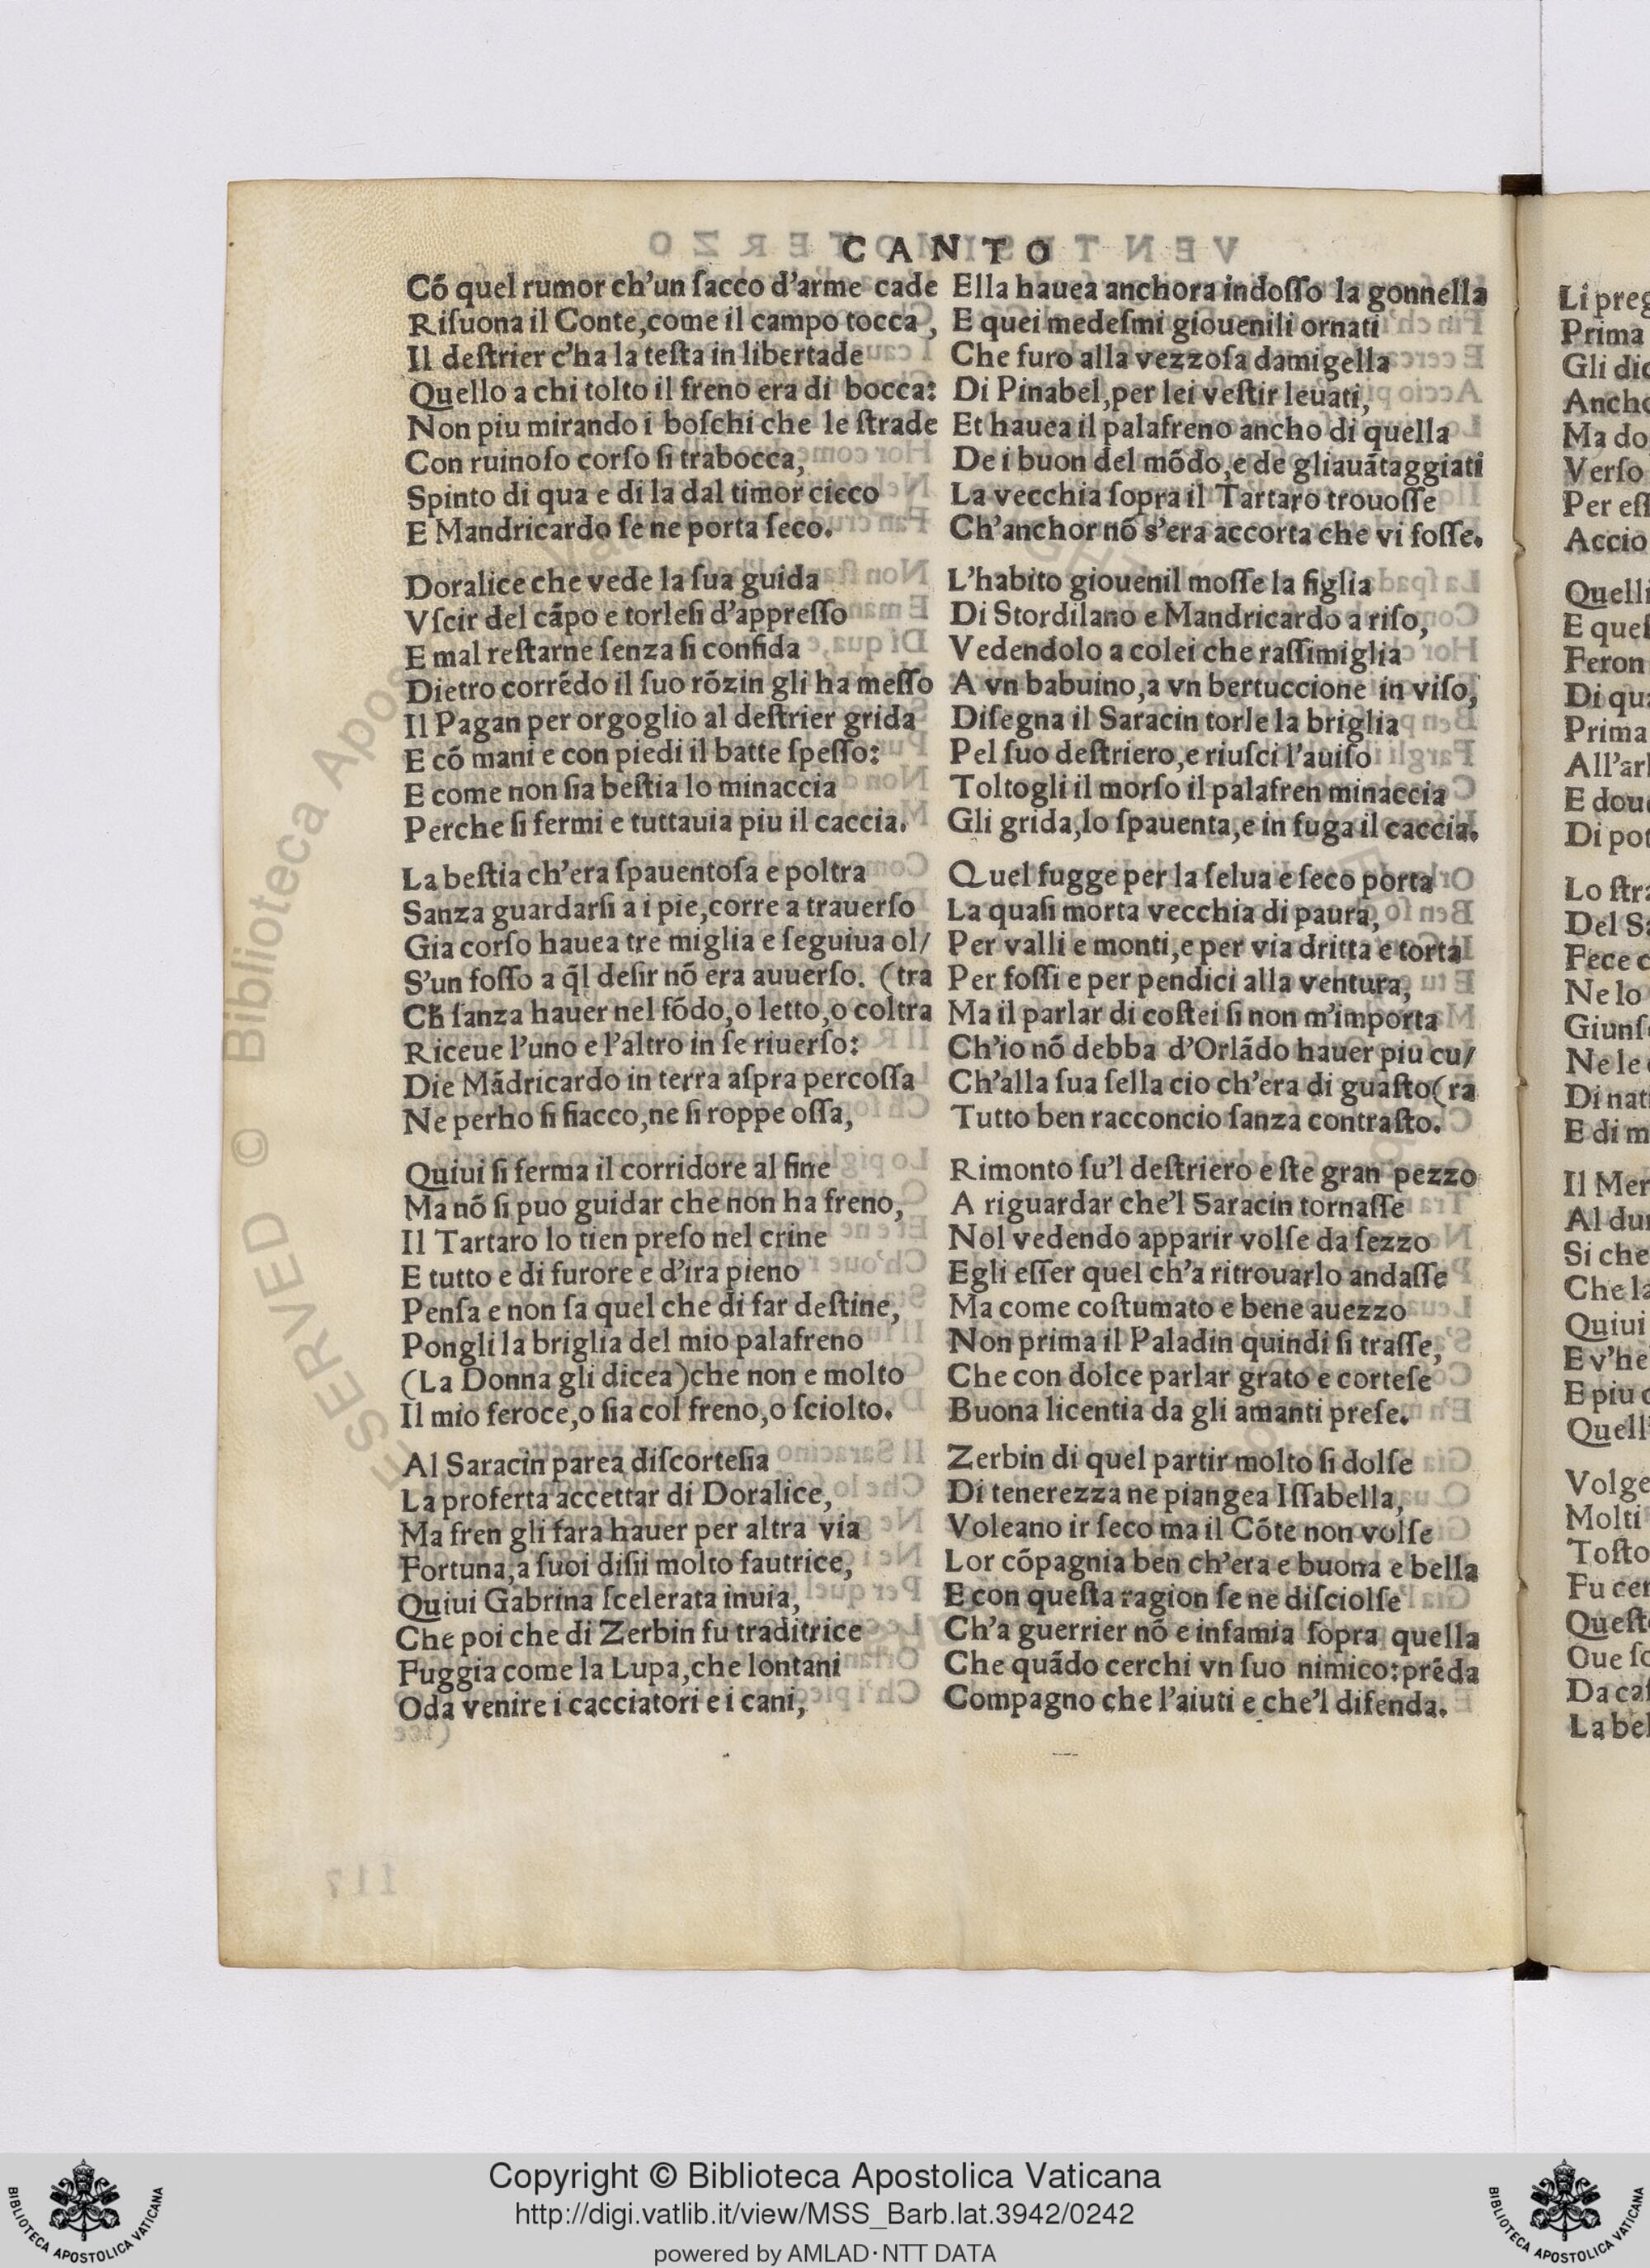 CANTO
Cõ quel rumor ch'un ſacco d'arme cade
Riſuona il Conte,come il campo tocca,
Il deſtrier c'ha la teſta in libertade
Quello a chi tolto il freno era di bocca:
Non piu mirando i boſchi che le ſtrade
Con ruinoſo corſo ſi trabocca,
Spinto di qua e di la dal timor cieco
E Mandricardo ſe ne porta ſeco.
Doralice che vede la ſua guida
Vſcir del cãpo e torleſi d'appreſſo
E mal reſtarne ſenza ſi confida
Dietro corrẽdo il ſuo rõzin gli ha meſſo
Il Pagan per orgoglio al deſtrier grida
E cõ mani e con piedi il batte ſpeſſo:
E come non ſia beſtia lo minaccia
Perche ſi fermi e tuttauia piu il caccia.
La beſtia ch'era ſpauentoſa e poltra
Sanza guardarſi a i pie,corre a trauerſo
Gia corſo hauea tre miglia e ſeguiua ol/
S'un foſſo a q̃l deſir nõ era auuerſo. (tra
Ch̃ ſanza hauer nel fõdo,o letto,o coltra
Riceue l'uno e l'altro in ſe riuerſo:
Die Mãdricardo in terra aſpra percoſſa
Ne perho ſi fiacco,ne ſi roppe oſſa,
Quiui ſi ferma il corridore al fine
Ma nõ ſi puo guidar che non ha freno,
Il Tartaro lo tien preſo nel crine
E tutto e di furore e d'ira pieno
Penſa e non ſa quel che di far deſtine,
Pongli la briglia del mio palafreno
(La Donna gli dicea)che non e molto
Il mio feroce,o ſia col freno,o ſciolto.
Al Saracin parea diſcorteſia
La proferta accettar di Doralice,
Ma fren gli fara hauer per altra via
Fortuna,a ſuoi diſii molto fautrice,
Quiui Gabrina ſcelerata inuia,
Che poi che di Zerbin fu traditrice
Fuggia come la Lupa,che lontani
Oda venire i cacciatori e i cani,
Ella hauea anchora indoſſo la gonnella
E quei medeſmi giouenili ornati
Che furo alla vezzoſa damigella
Di Pinabel,per lei veſtir leuati,
Et hauea il palafreno ancho di quella
De i buon del mõdo,e de gliauãtaggiati
La vecchia ſopra il Tartaro trouoſſe
Ch'anchor nõ s'era accorta che vi foſſe.
L'habito giouenil moſſe la figlia
Di Stordilano e Mandricardo a riſo,
Vedendolo a colei che raſſimiglia
A vn babuino,a vn bertuccione in viſo,
Diſegna il Saracin torle la briglia
Pel ſuo deſtriero,e riuſci l'auiſo
Toltogli il morſo il palafren minaccia
Gli grida,lo ſpauenta,e in fuga il caccia.
Quel fugge per la ſelua e ſeco porta
La quaſi morta vecchia di paura,
Per valli e monti,e per via dritta e torta
Per foſſi e per pendici alla ventura,
Ma il parlar di coſtei ſi non m'importa
Ch'io nõ debba d'Orlãdo hauer piu cu/
Ch'alla ſua ſella cio ch'era di guaſto(ra
Tutto ben racconcio ſanza contraſto.
Rimonto ſu'l deſtriero e ſte gran pezzo
A riguardar che'l Saracin tornaſſe
Nol vedendo apparir volſe da ſezzo
Egli eſſer quel ch'a ritrouarlo andaſſe
Ma come coſtumato e bene auezzo
Non prima il Paladin quindi ſi traſſe,
Che con dolce parlar grato e corteſe
Buona licentia da gli amanti preſe.
Zerbin di quel partir molto ſi dolſe
Di tenerezza ne piangea Iſſabella,
Voleano ir ſeco ma il Cõte non volſe
Lor cõpagnia ben ch'era e buona e bella
E con queſta ragion ſe ne diſciolſe
Ch'a guerrier nõ e infamia ſopra quella
Che quãdo cerchi vn ſuo nimico:prẽda
Compagno che l'aiuti e che'l difenda.
Li preg
Prima
Gli dic
Ancho
Ma do
Verſo
Per eſſ
Accio
Quelli
E queſ
Feron
Di qua
Prima
All'arl
E doue
Di pot
Lo ſtra
Del Sa
Fece c
Ne lo
Giunſ
Ne le
Di nat
E di m
Il Mer
Al dur
Si che
Che la
Quiui
E v'he
E piu c
Quell'
Volge
Molti
Toſto
Fu cer
Queſto
Oue ſo
Da caſ
La bel
ESERVED © Biblioteca Apos
Copyright © Biblioteca Apostolica Vaticana
http://digi.vatlib.it/view/MSS_Barb.lat.3942/0242
powered by AMLAD·NTT DATA
BIBLIOTECA APOSTOLICA VATICANA
BIBLIOTECA APOSTOLICA VATICANA